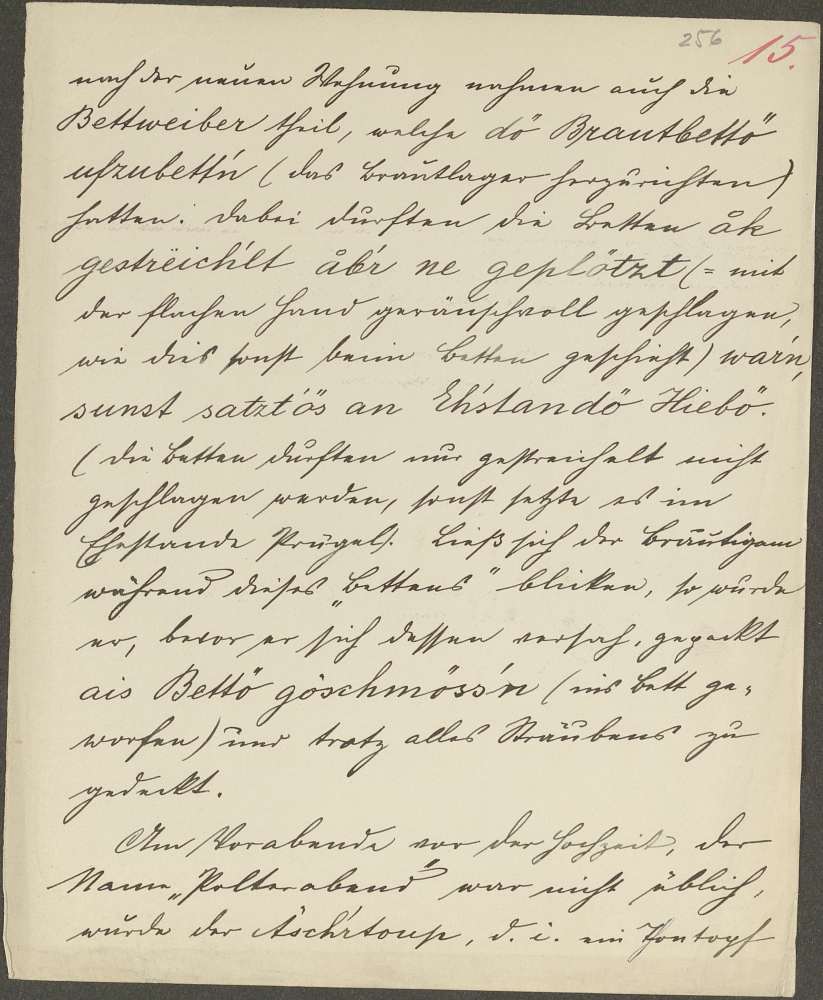 256 15.
nach der neuen Wohnung nahmen auch die
Bettweiber theil, welche dö Brautbettö
ufzubett'n (das Brautlager herzurichten)
hatten. Dabei durften die Betten åk
gestrëich'lt åb'r ne geplötzt (= mit
der flachen Hand geräuschvoll geschlagen,
wie dies sonst beim Betten geschieht) war'n,
sunst satzt'ös an Eh'standö Hiebö.
(die Betten durften nur gestreichelt nicht
geschlagen werden, sonst setzte es im
Ehestande Prügel). Ließ sich der Bräutigam
während dieses „Bettens" blicken, so wurde
er, bevor er sich dessen versah, gepackt
ais Bettö göschmöss'n (ins Bett ge-
worfen) und trotz alles Sträubens zu
gedeckt.
Am Vorabende vor der Hochzeit, der
Name „Polterabend" war nicht üblich,
wurde der Äsch'rtoup, d. i. ein Thontopf